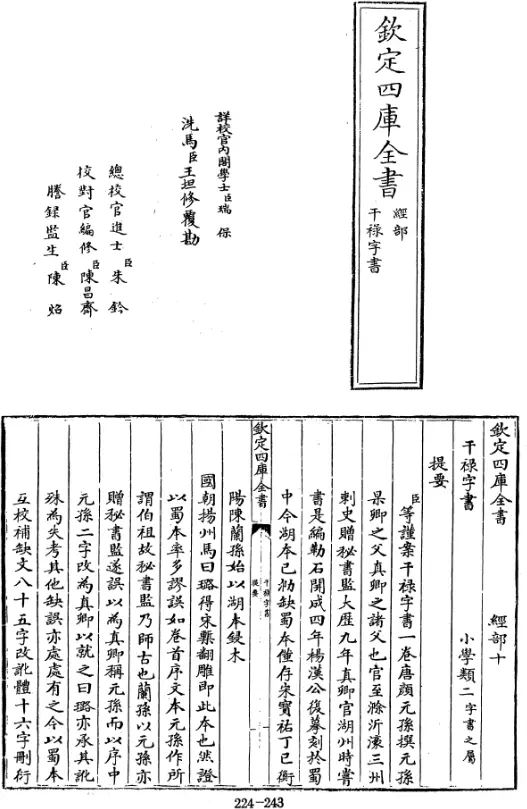 欽定四庫全書
經部
干祿字書
詳校官內閣學士臣瑞保
洗馬臣王坦修覆勘
總校官進士臣朱鈐
校對官編修臣陳昌齊
謄録監生臣陳焰
欽定四庫全書 經部十
干祿字書 小學類二字書之屬
提要
臣等謹案干祿字書一卷唐顔元孫撰元孫
杲卿之父真卿之諸父也官至滁沂濠三州
刺史贈秘書監大歷九年真卿官湖州時嘗
書是編勒石開成四年楊漢公復摹刻於蜀
中今湖本已泐缺蜀本僅存宋寶祐丁巳衡
欽定四庫全書
干祿字書
提要
一
陽陳蘭孫始以湖本録木
國朝揚州馬曰璐得宋槧翻雕即此本也然證
以蜀本率多謬誤如卷首序文本元孫作所
謂伯祖故秘書監乃師古也蘭孫以元孫亦
贈秘書監遂誤以為真卿稱元孫而以序中
元孫二字改為真卿以就之曰璐亦承其訛
殊為失考其他缺誤亦處處有之今以蜀本
互校補缺文八十五字改訛體十六字刪衍
224-243